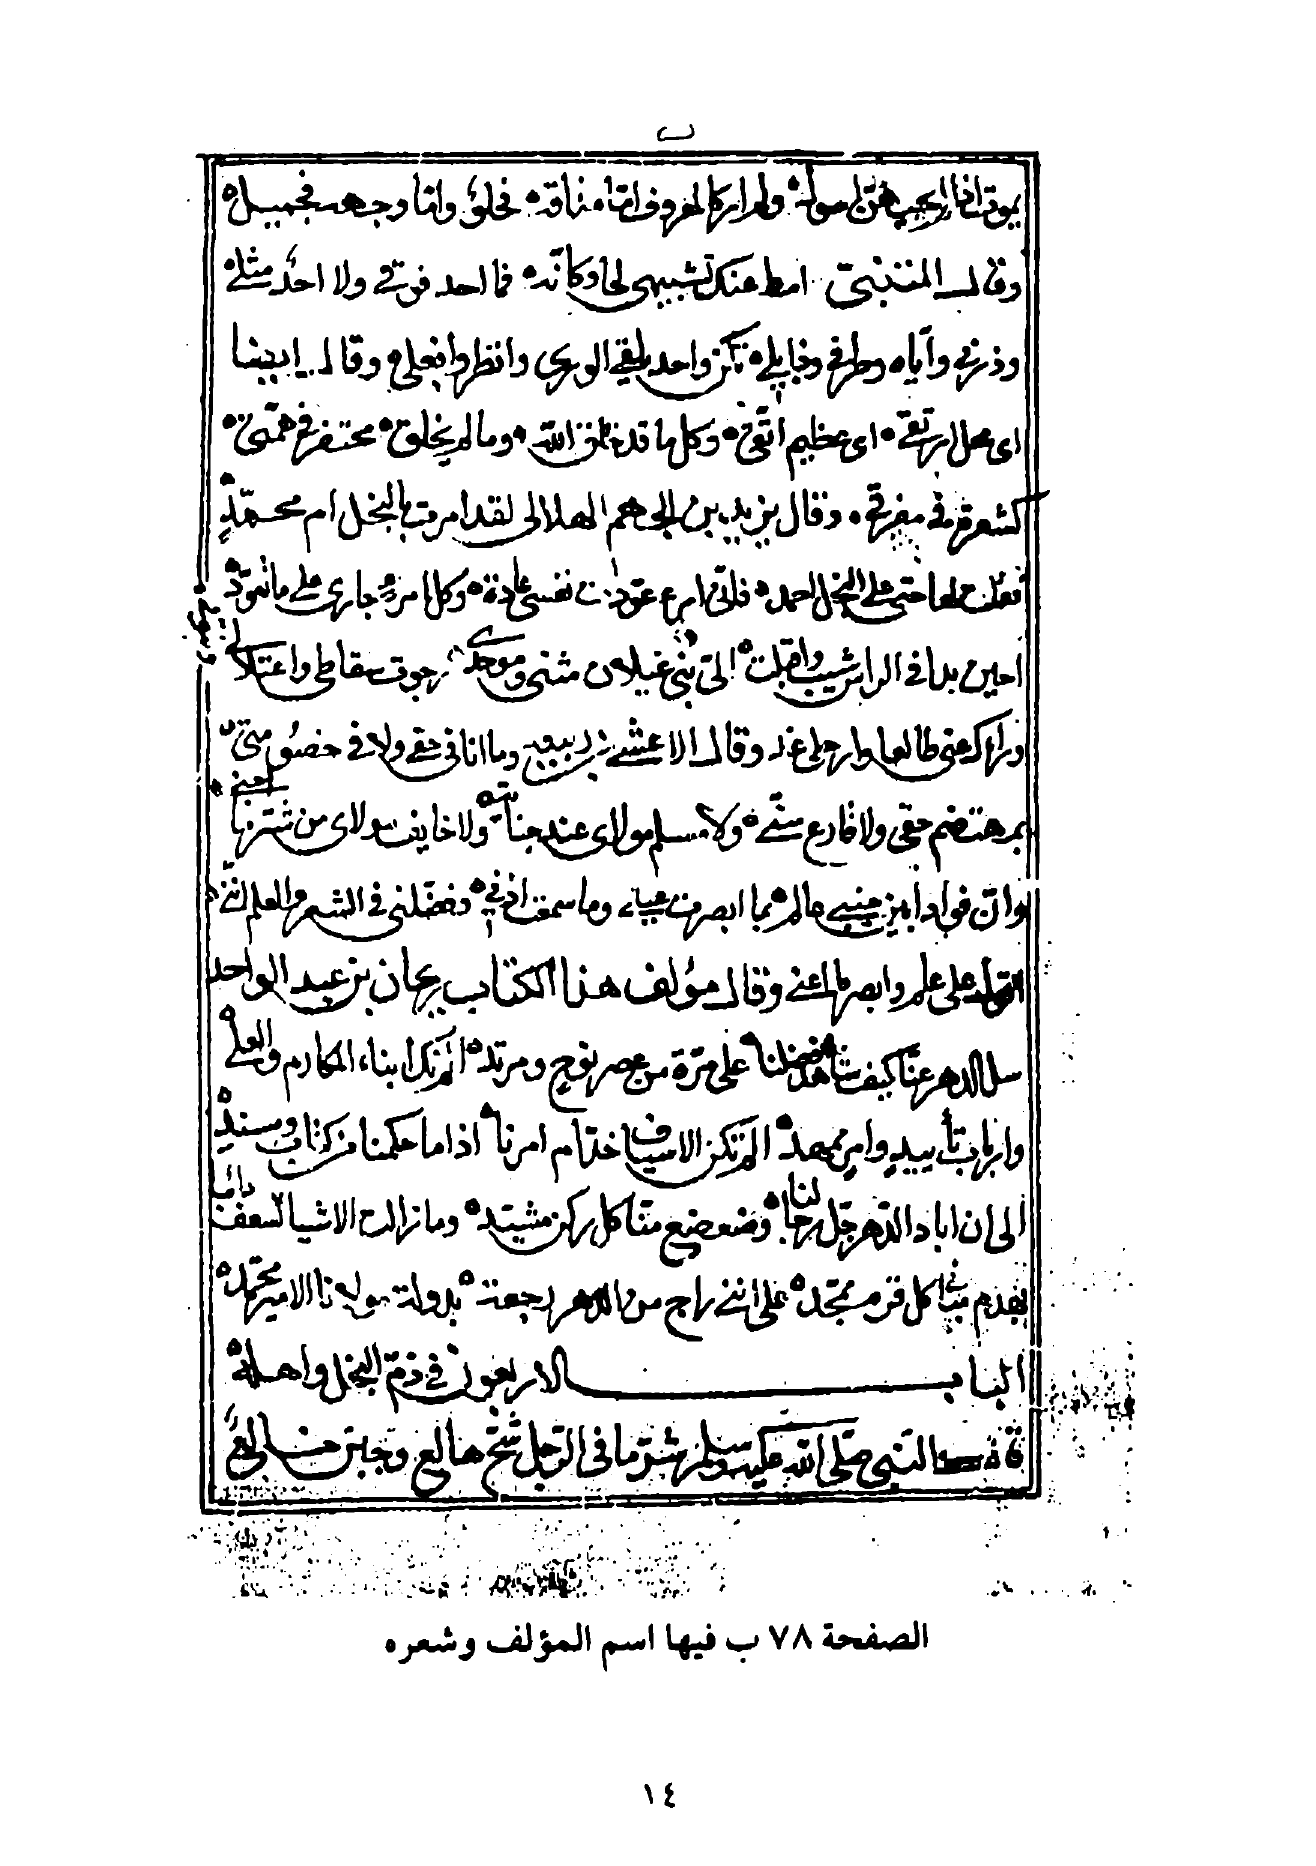 ب
يموت اذا لم يحيهن اصول ولم ار كالمعروف اما مذاقه فحلو واما وجهه فجميل
وقال المتنبي امط عنك تشبيهي بما وكانه فما احد فوقي ولا احد مثلي
وذرني واياه وطرفي وذابلي نكن واحدا يلقى الورى وانظروا فعلي وقال ايضا
اي محل ارتقي اي عظيم اتقي وكل ما قد خلق الله وما لم يخلق محتقر في همتي
كشعرة في مفرقي وقال يزيد بن الجهم الهلالي لقد امرت بالبخل ام محمد
فقلت لها حثي على البخل احمد فاني امرء عودت نفسي عادة وكل امرء جاري على ما تعود
احين بدا في الراس شيب واقبلت الي بني غيلان مثنى وموحد رجوت سقاطي واعتلالي
وراءك عني طالقا وارحلي غد وقال الاعشى ربيعة وما انا في حقي ولا في خصومتي
بمهتضم حقي ولا قارع سني ولا مسلم مولاي عند جناية ولا خايف مولاي من شر ما اجني
وان فوادا بين جنبي عالم بما ابصرت عيني وما سمعت اذني وفضلني في الشعر والعلم انني
اقول على علم واعنى وقال مؤلف هذا الكتاب ريحان بن عبد الواحد
سل الدهر عنا كيف شاهد فضلنا على مرة من عصر نوح ومرتد الم نك ابناء المكارم والعلى
وارباب تأييد وامر ممهد الم تكن الاسياف ختام امرنا اذا ما حكمنا من كتاب ومسند
الى ان اباد الدهر جل رجالنا وضعضع منا كل ركن مشيد وما زالت الاشيا
منا كل قرم ممجد على انني راج من الدهر رجعة بدولة مولانا الامير محمد
الباب الاربعون في ذم البخل واهله
قال النبي صلى الله عليه وسلم شر ما في الرجل شح هالع وجبن خالع
الصفحة ٧٨ ب فيها اسم المؤلف وشعره
١٤